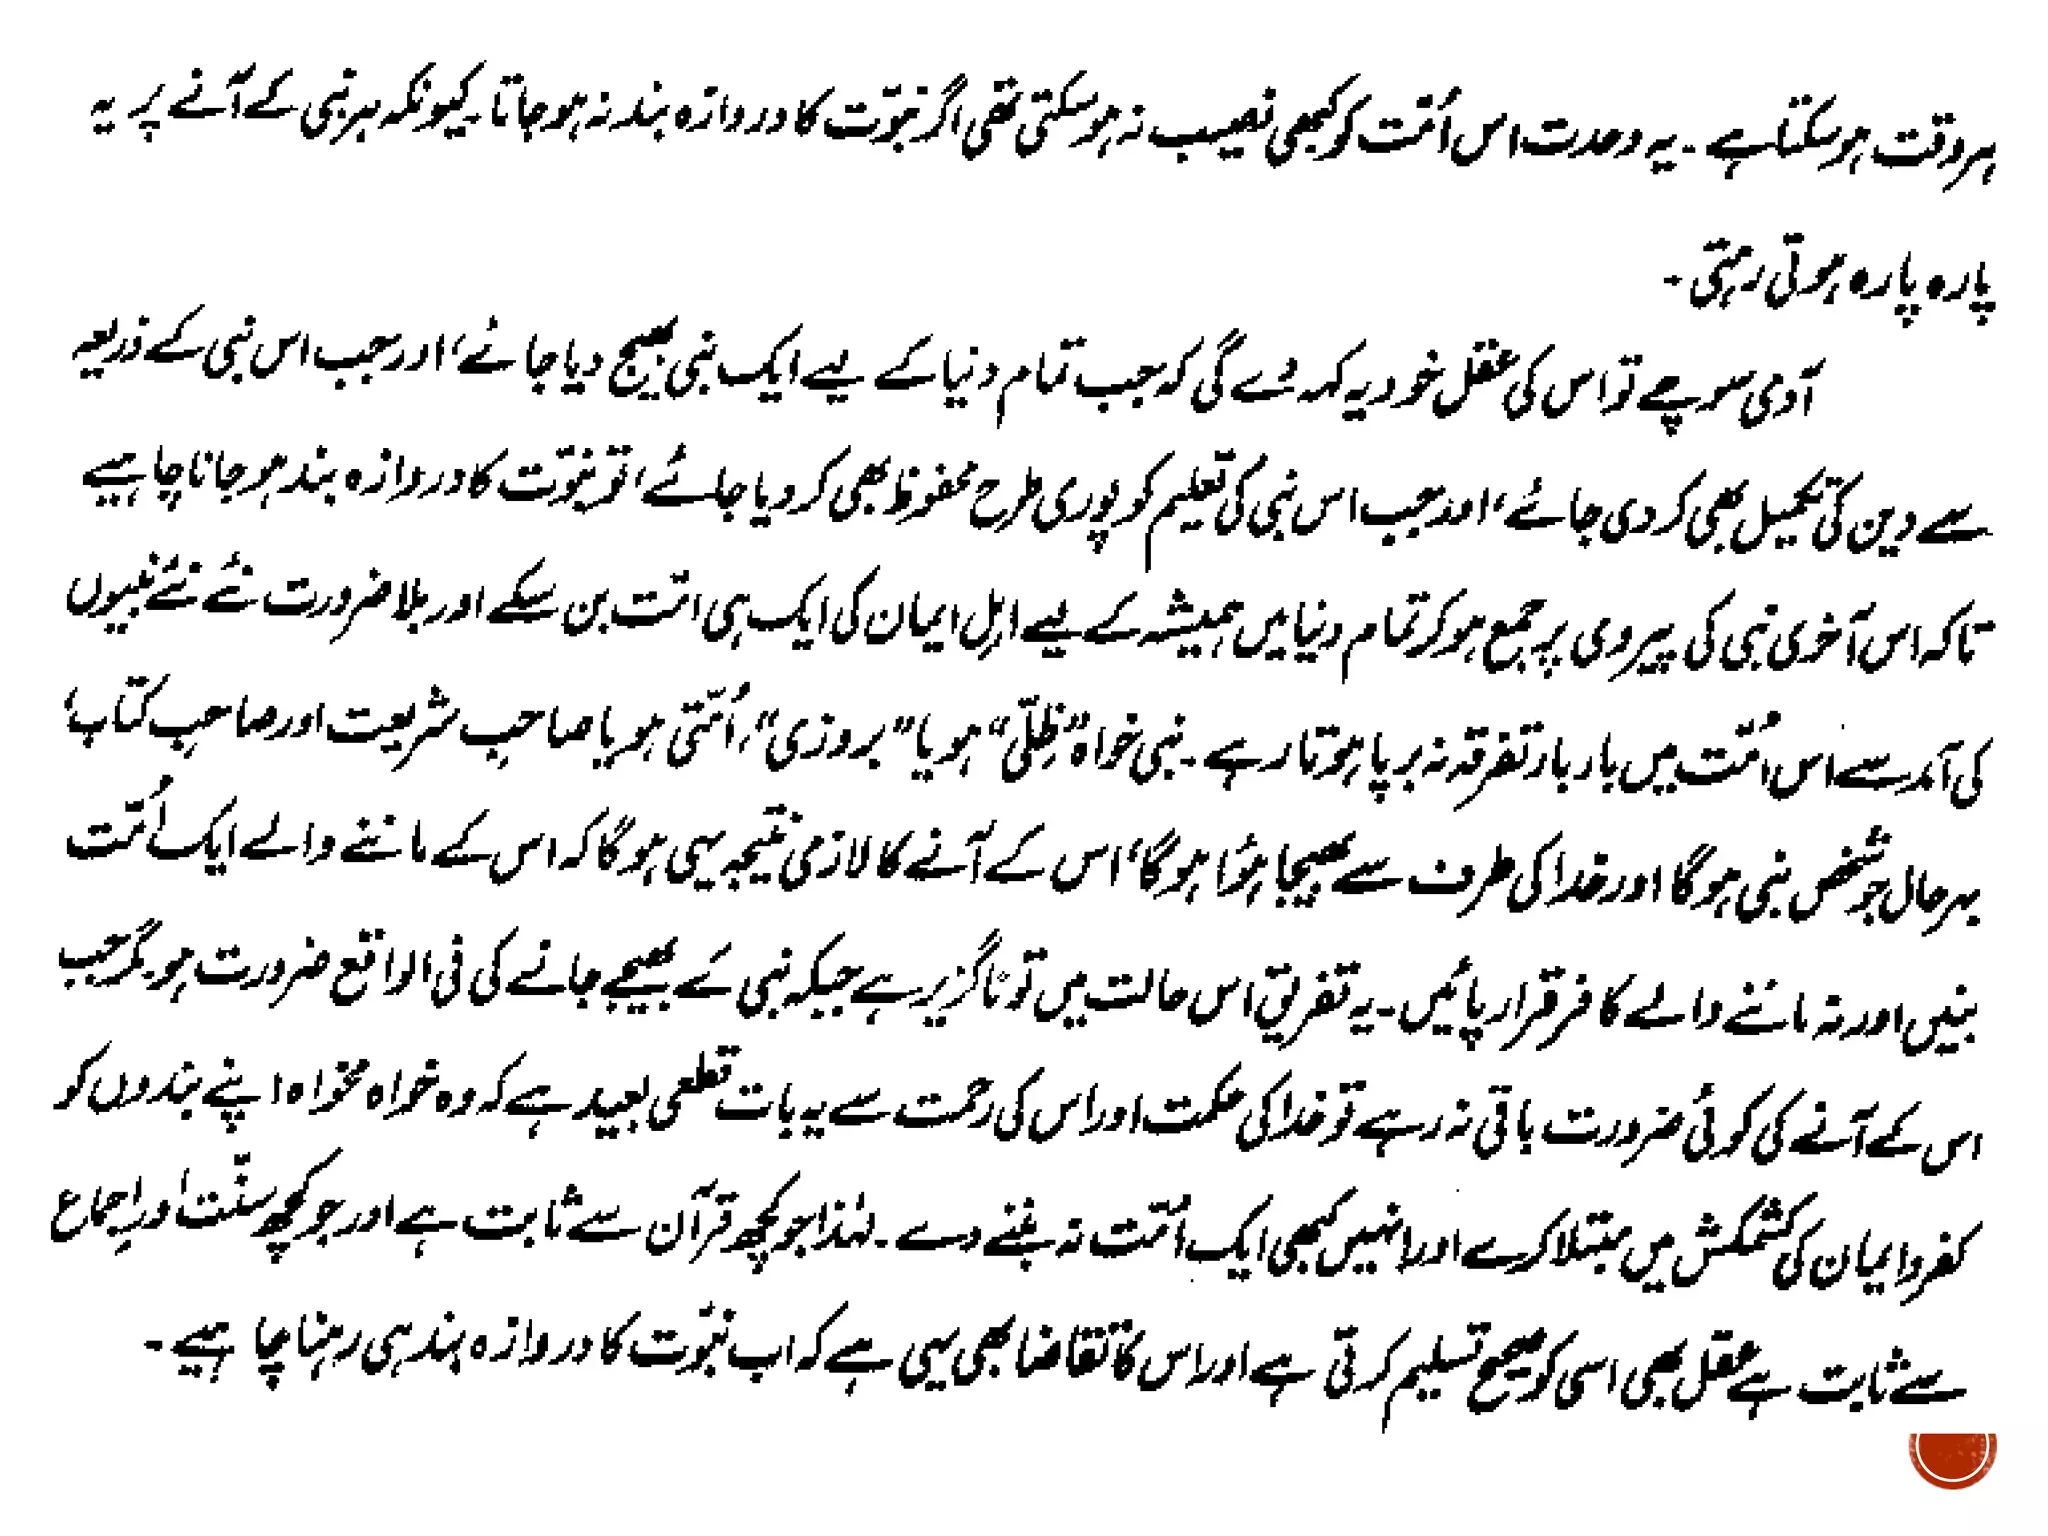 ہر وقت ہو سکتا ہے ۔ یہ وحدت اس اُمّت کو کبھی نصیب نہ ہو سکتی تھی اگر نبوّت کا دروازہ بند نہ ہو جاتا۔ کیونکہ ہر نبی کے آنے پر یہ
پارہ پارہ ہوتی رہتی ۔
آدمی سوچے تو اس کی عقل خود یہ کہہ دے گی کہ جب تمام دنیا کے لیے ایک نبی بھیج دیا جائے، اور جب اس نبی کے ذریعہ
سے دین کی تکمیل بھی کر دی جائے، اور جب اس نبی کی تعلیم کو پوری طرح محفوظ بھی کر دیا جائے، تو نبوّت کا دروازہ بند ہو جانا چاہیے
تاکہ اس آخری نبی کی پیروی پر جمع ہو کر تمام دنیا میں ہمیشہ کے لیے اہلِ ایمان کی ایک ہی امّت بن سکے اور بلا ضرورت نئے نئے نبیوں
کی آمد سے اس اُمّت میں بار بار تفرقہ نہ برپا ہوتا رہے ۔ نبی خواہ ”ظِلّی“ ہو یا ”بروزی“، اُمّتی ہو یا صاحبِ شریعت اور صاحبِ کتاب،
بہرحال جو شخص نبی ہوگا اور خدا کی طرف سے بھیجا ہوُا ہوگا، اس کے آنے کا لازمی نتیجہ یہی ہوگا کہ اس کے ماننے والے ایک اُمّت
بنیں اور نہ ماننے والے کافر قرار پائیں ۔ یہ تفریق اس حالت میں تو ناگزیر ہے جبکہ نبی کے بھیجے جانے کی فی الواقع ضرورت ہو۔ مگر جب
اس کے آنے کی کوئی ضرورت باقی نہ رہے تو خدا کی حکمت اور اس کی رحمت سے یہ بات قطعی بعید ہے کہ وہ خواہ مخواہ اپنے بندوں کو
کفر و ایمان کی کشمکش میں مبتلا کرے اور انہیں کبھی ایک اُمّت نہ بننے دے ۔ لہٰذا جو کچھ قرآن سے ثابت ہے اور جو کچھ سنّت اور اجماع
سے ثابت ہے عقل بھی اسی کو صحیح تسلیم کرتی ہے اور اس کا تقاضا بھی یہی ہے کہ اب نبوّت کا دروازہ بند ہی رہنا چاہیے ۔